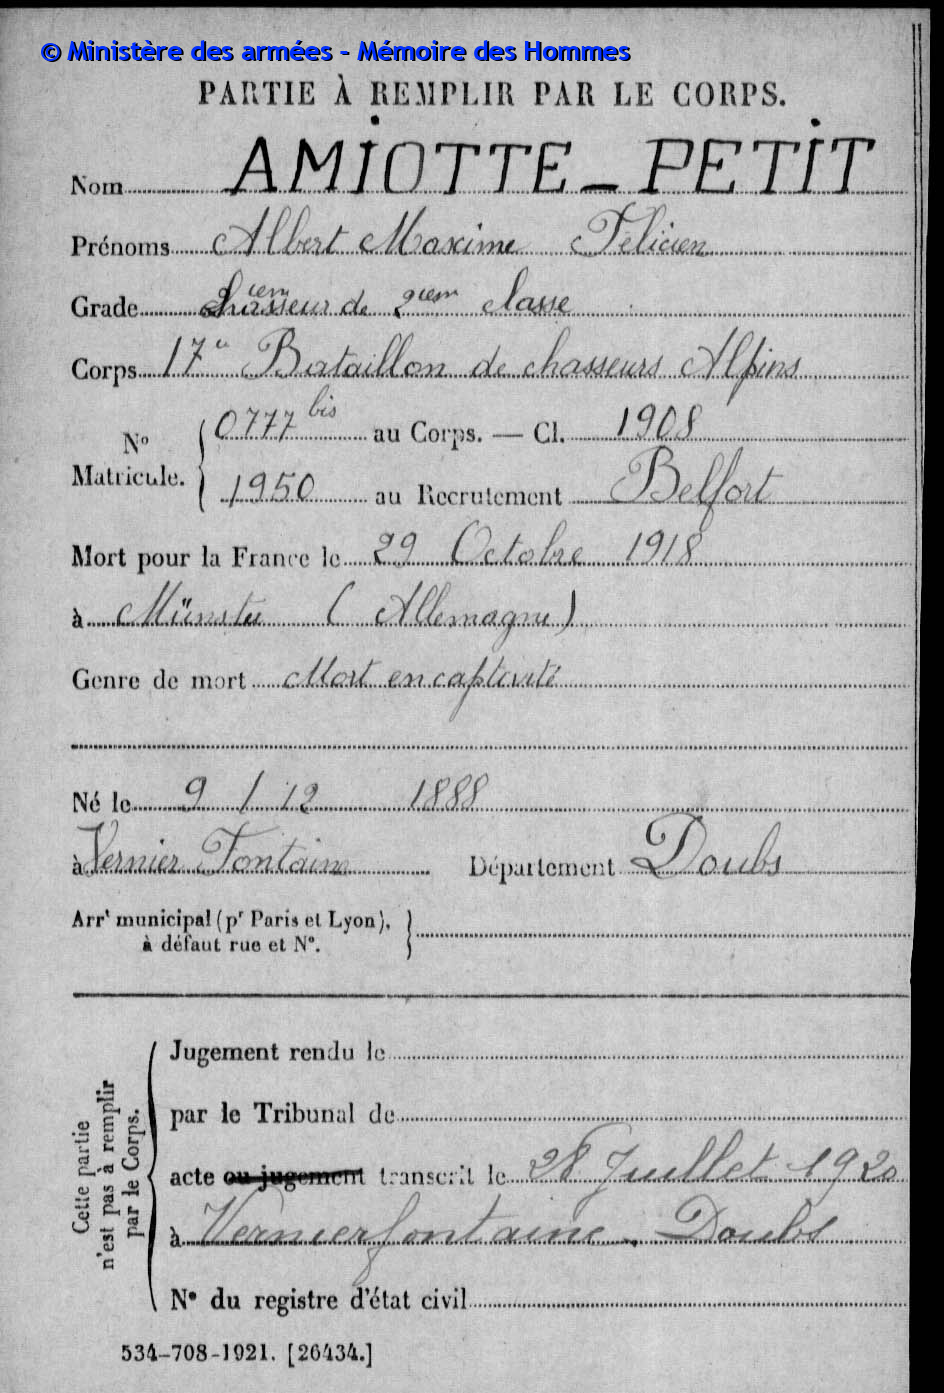 © Ministère des armées - Mémoire des Hommes
PARTIE À REMPLIR PAR LE CORPS.
Nom AMIOTTE-PETIT
Prénoms Albert Maxime Félicien
Grade Chasseur de 2iem classe
Corps 17e Bataillon de chasseurs Alpins
N° Matricule. { 0777 bis au Corps. — Cl. 1908
1950 au Recrutement Belfort
Mort pour la France le 29 Octobre 1918
à Münster (Allemagne)
Genre de mort Mort en captivité
Né le 9 / 12 1888
à Vernier Fontaine Département Doubs
Arrt municipal (pr Paris et Lyon), }
à défaut rue et N°.
Cette partie n'est pas à remplir par le Corps.
Jugement rendu le
par le Tribunal de
acte ou jugement transcrit le 28 Juillet 1920
à Vernierfontaine. Doubs
N° du registre d'état civil
534-708-1921. [26434.]